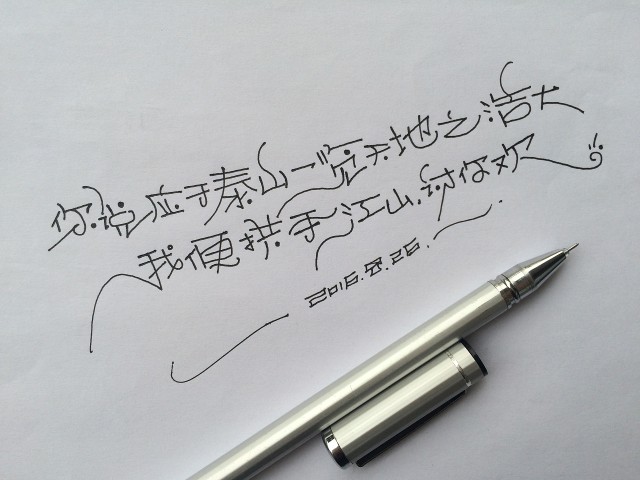 你说应于泰山一览天地之浩大
我便拱手江山讨你欢
2016.8.26.